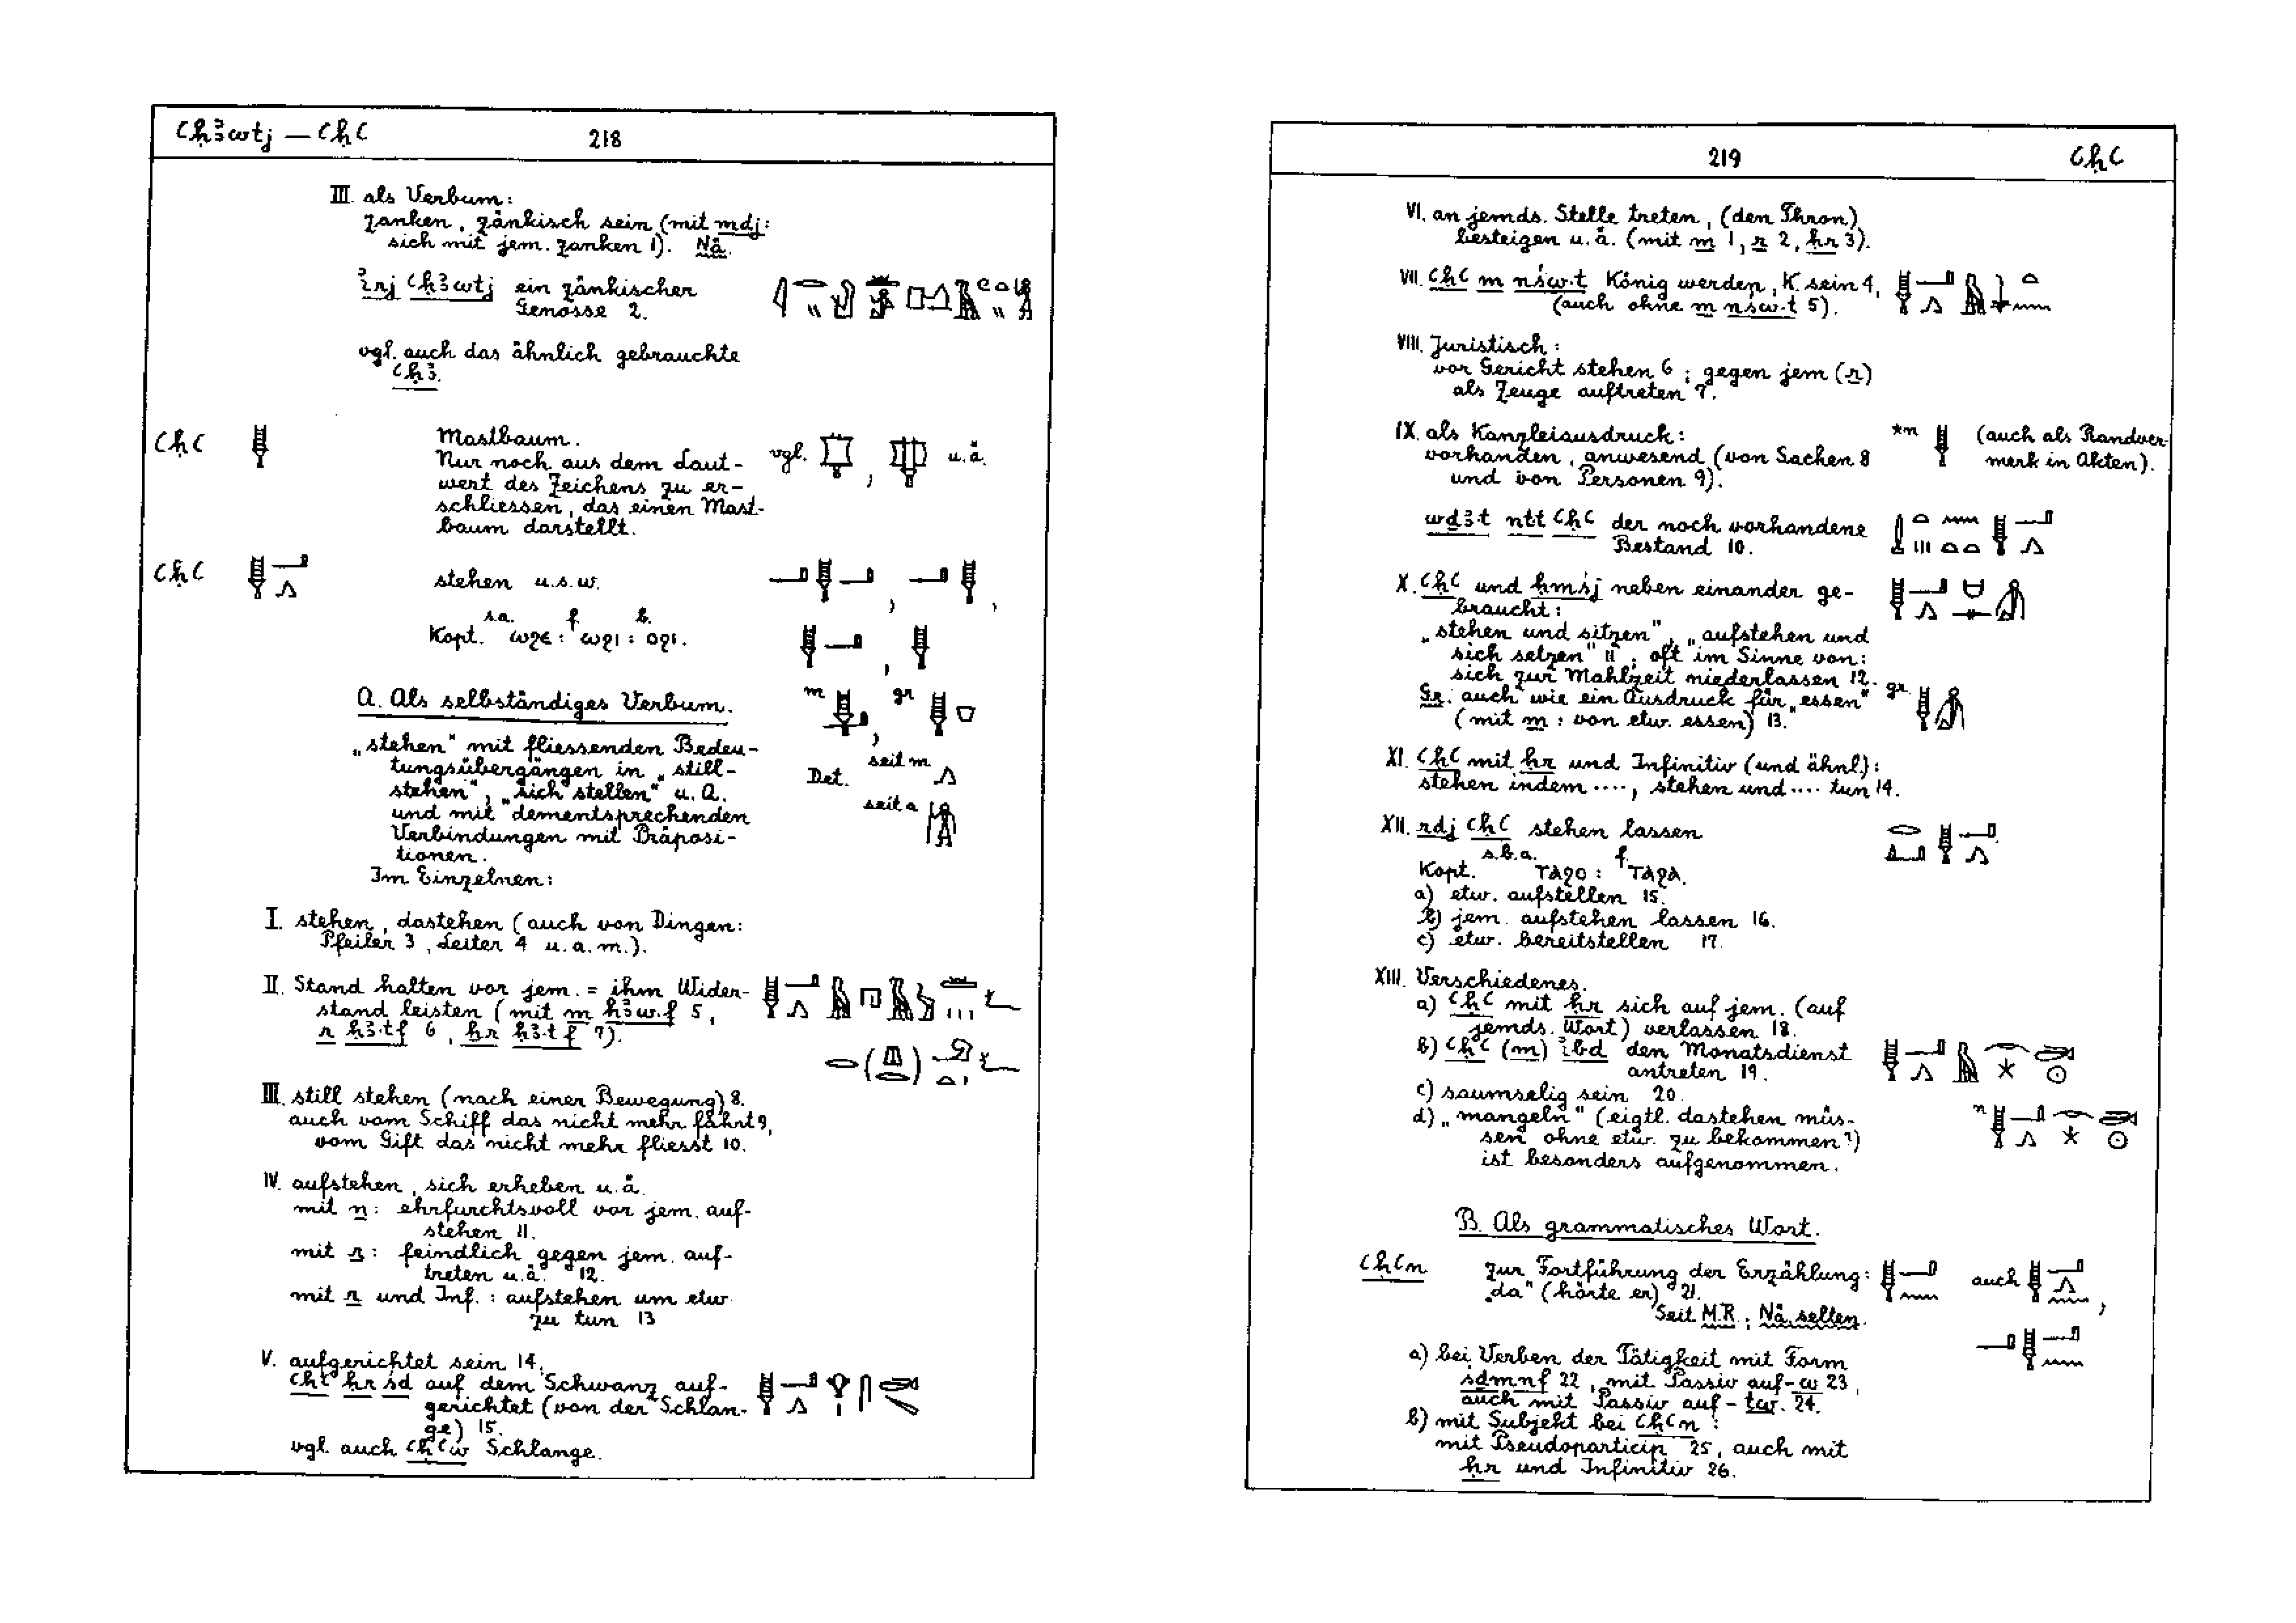 ꜥḥꜣwtj — ꜥḥꜥ 218
III. als Verbum:
zanken, zänkisch sein (mit mdj:
sich mit jem. zanken 1). Nä.
ỉrj ꜥḥꜣwtj ein zänkischer
Genosse 2.
vgl. auch das ähnlich gebrauchte
ꜥḥꜣ.
ꜥḥꜥ Mastbaum.
Nur noch aus dem Laut- vgl. , u.ä.
wert des Zeichens zu er-
schliessen, das einen Mast-
baum darstellt.
ꜥḥꜥ stehen u.s.w.
s.a. f. b.
Kopt. ⲱϩⲉ : ⲱϩⲓ : ⲟϩⲓ.
A. Als selbständiges Verbum. m gr
„stehen" mit fliessenden Bedeu-
tungsübergängen in „still- Det. seit m
stehen", „sich stellen" u. A. seit a
und mit dementsprechenden
Verbindungen mit Präposi-
tionen.
Im Einzelnen:
I. stehen, dastehen (auch von Dingen:
Pfeiler 3, Leiter 4 u.a.m.).
II. Stand halten vor jem. = ihm Wider-
stand leisten (mit m ḥꜣw.f 5,
r ḥꜣ.tf 6, ḥr ḥꜣ.t f 7).
III. still stehen (nach einer Bewegung) 8.
auch vom Schiff das nicht mehr fährt 9,
vom Gift das nicht mehr fliesst 10.
IV. aufstehen, sich erheben u.ä.
mit n: ehrfurchtsvoll vor jem. auf-
stehen 11.
mit r: feindlich gegen jem. auf-
treten u.ä. 12.
mit r und Inf.: aufstehen um etw.
zu tun 13
V. aufgerichtet sein 14.
ꜥḥꜥ ḥr śd auf dem Schwanz auf-
gerichtet (von der Schlan-
ge) 15.
vgl. auch ꜥḥꜥw Schlange.
219 ꜥḥꜥ
VI. an jemds. Stelle treten, (den Thron)
besteigen u.ä. (mit m 1, r 2, ḥr 3).
VII. ꜥḥꜥ m nśw.t König werden, K. sein 4,
(auch ohne m nśw.t 5).
VIII. Juristisch:
vor Gericht stehen 6; gegen jem (r)
als Zeuge auftreten 7.
IX. als Kanzleiausdruck: *n (auch als Randver-
vorhanden, anwesend (von Sachen 8 merk in Akten).
und von Personen 9).
wḏꜣ.t ntt ꜥḥꜥ der noch vorhandene
Bestand 10.
X. ꜥḥꜥ und ḥmśj neben einander ge-
braucht:
„stehen und sitzen", „aufstehen und
sich setzen" 11, oft im Sinne von:
sich zur Mahlzeit niederlassen 12.
Gr. auch wie ein Ausdruck für „essen" gr
(mit m: von etw. essen) 13.
XI. ꜥḥꜥ mit ḥr und Infinitiv (und ähnl.):
stehen indem ...., stehen und .... tun 14.
XII. rdj ꜥḥꜥ stehen lassen
s.b.a. f.
Kopt. ⲧⲁϩⲟ : ⲧⲁϩⲁ.
a) etw. aufstellen 15.
b) jem. aufstehen lassen 16.
c) etw. bereitstellen 17.
XIII. Verschiedenes.
a) ꜥḥꜥ mit ḥr sich auf jem. (auf
jemds. Wort) verlassen 18.
b) ꜥḥꜥ (m) ỉbd den Monatsdienst
antreten 19.
c) saumselig sein 20.
d) „mangeln" (eigtl. dastehen müs- n
sen ohne etw. zu bekommen?)
ist besonders aufgenommen.
B. Als grammatisches Wort.
ꜥḥꜥn zur Fortführung der Erzählung: auch
„da" (hörte er) 21.
Seit M.R.; Nä. selten.
a) bei Verben der Tätigkeit mit Form
śḏmnf 22, mit Passiv auf -w 23,
auch mit Passiv auf -tw. 24.
b) mit Subjekt bei ꜥḥꜥn:
mit Pseudoparticip 25, auch mit
ḥr und Infinitiv 26.